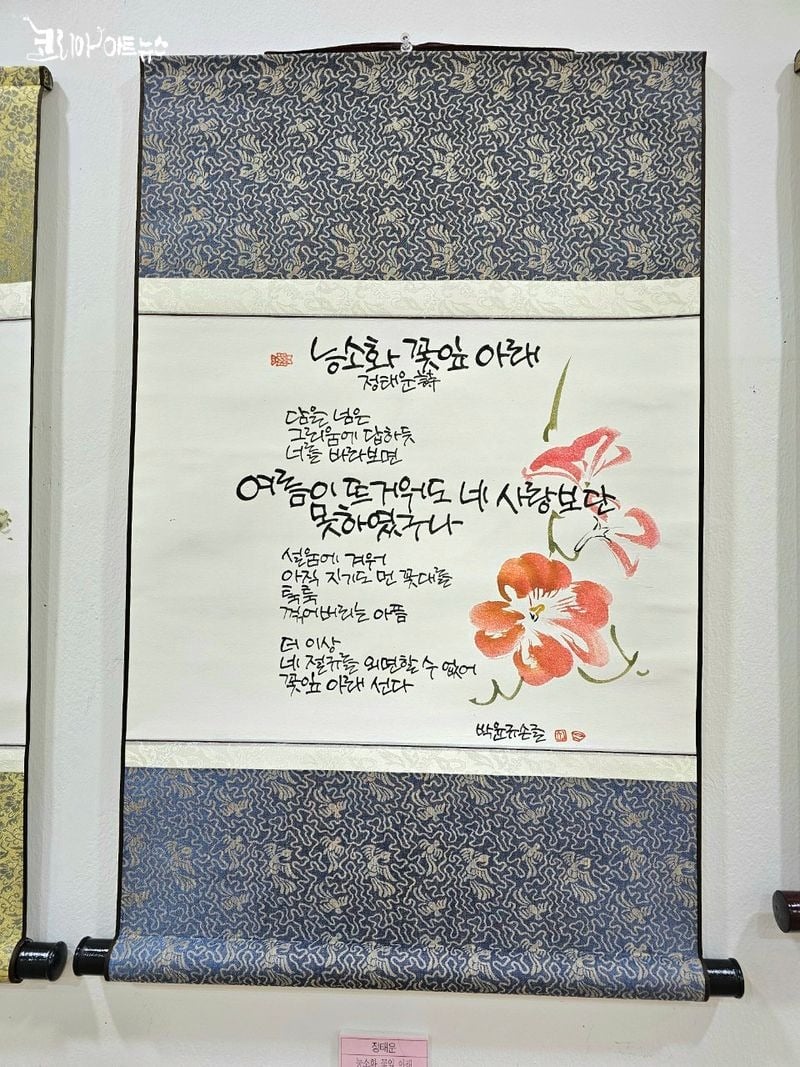 코리아아트뉴스
능소화 꽃잎 아래
정태운 詩
담을 넘은
그리움에 답하듯
너를 바라보면
여름이 뜨거워도 네 사랑보단
못하였구나
설움에 겨워
아직 지기도 먼 꽃대를
툭툭
꺾어버리는 아픔
더 이상
네 절규를 외면할 수 없어
꽃잎 아래 선다
박윤규손글
정태운
능소화 꽃잎 아래